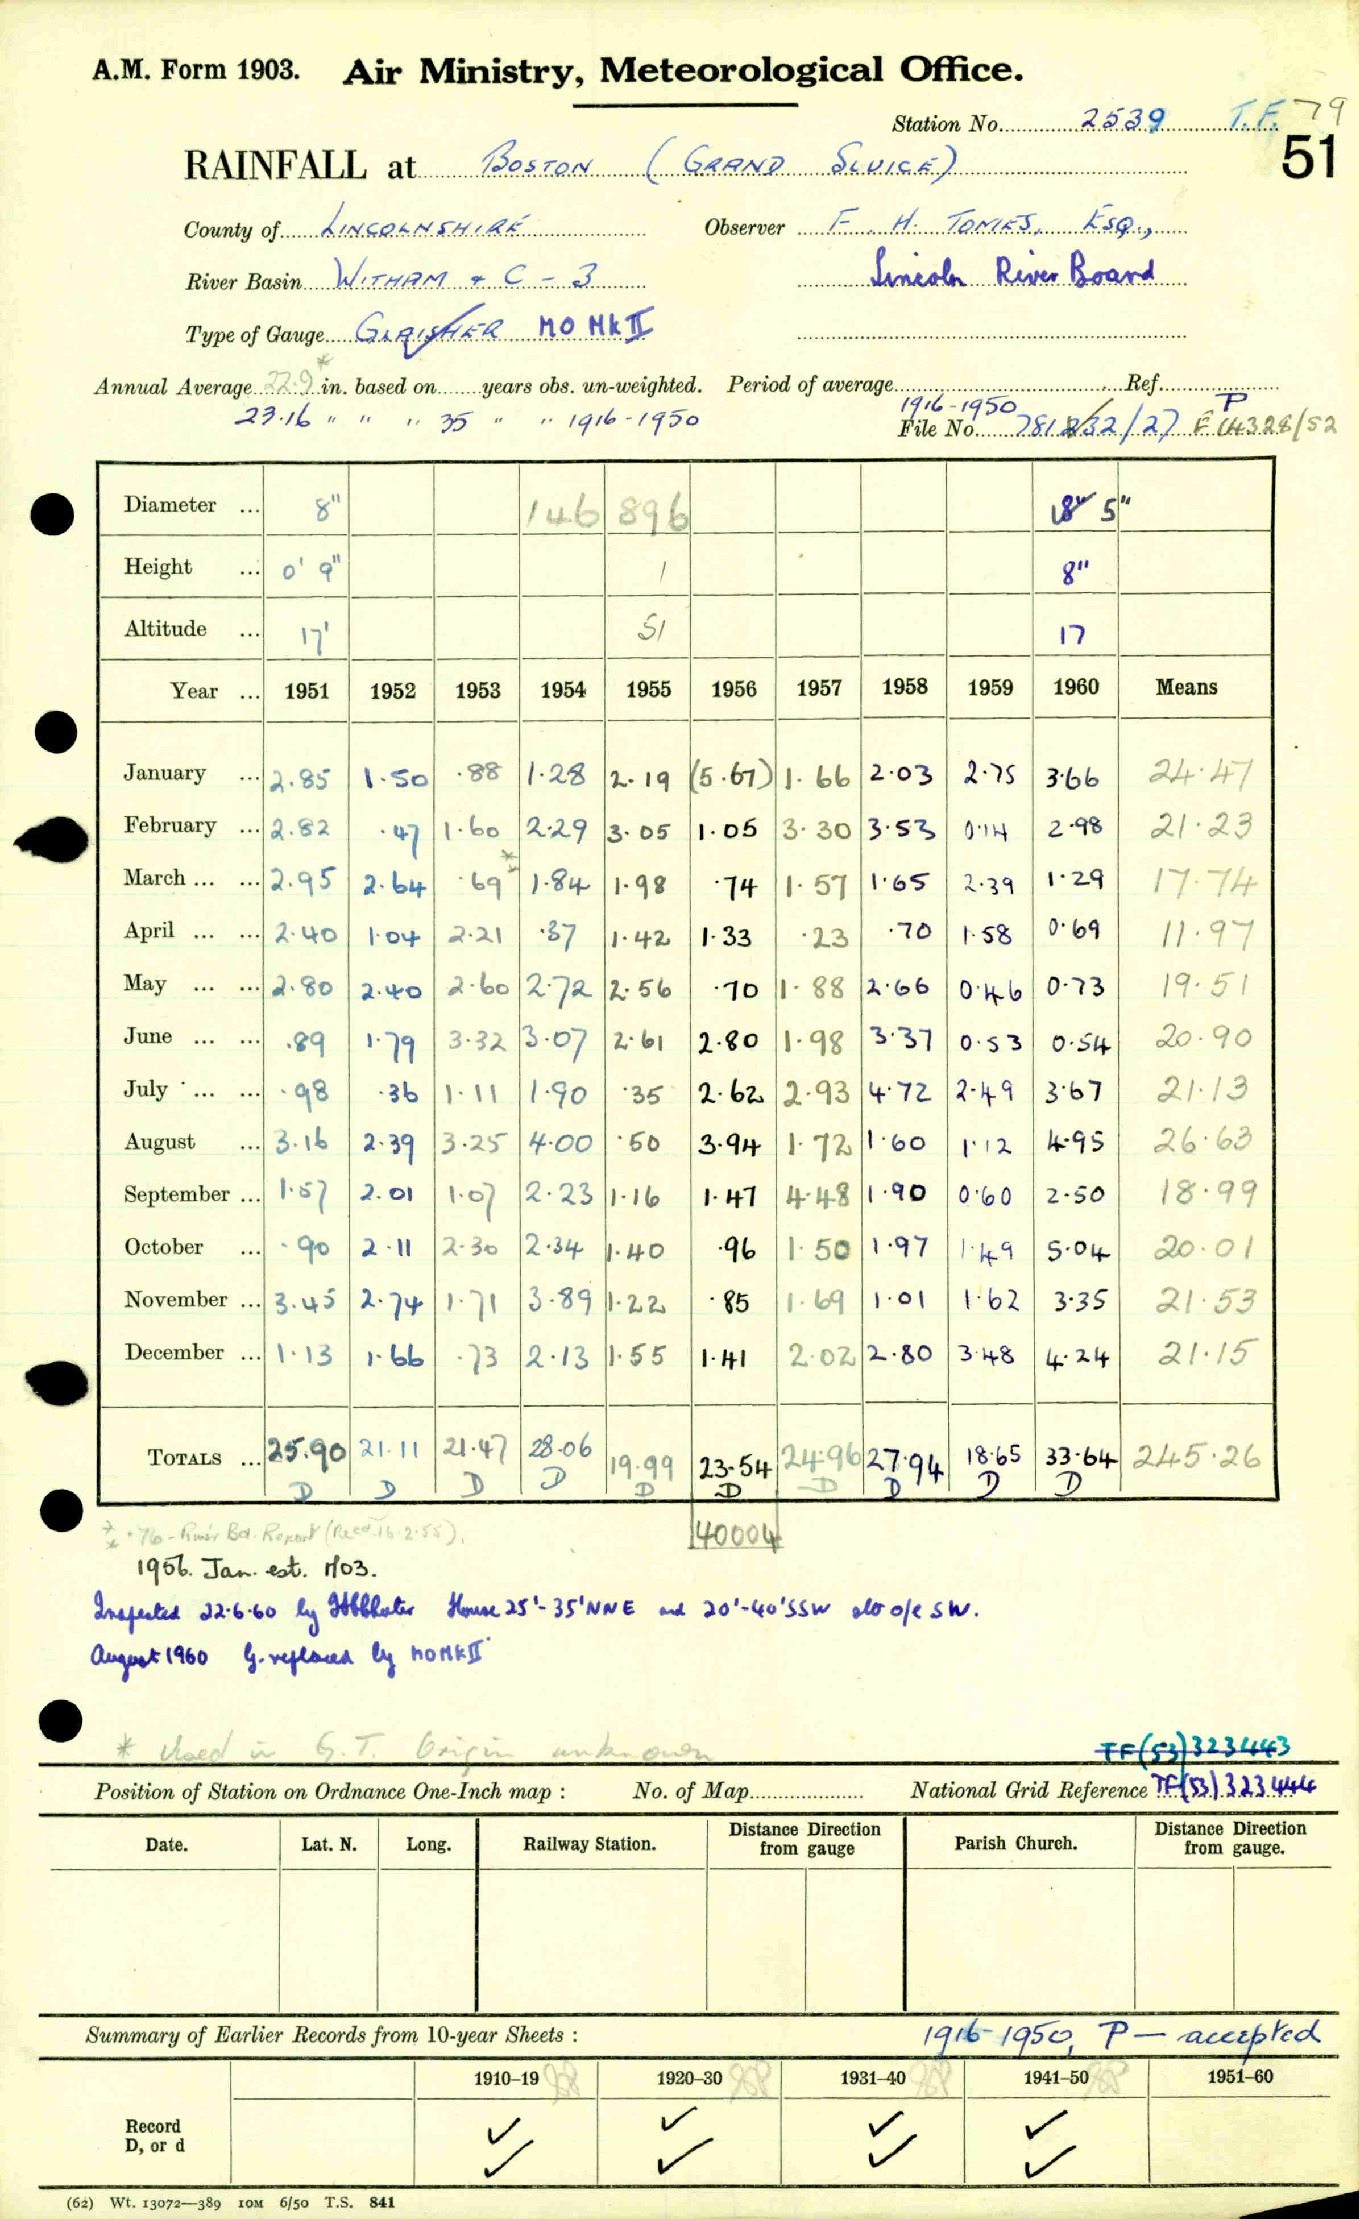 A.M. Form 1903. Air Ministry, Meteorological Office.
Station No. 2539 T.F. 79
51
RAINFALL at BOSTON (GRAND SLUICE)
County of LINCOLNSHIRE Observer F. H. TOMES, ESQ.,
River Basin WITHAM + C - 3 Lincoln River Board
Type of Gauge GLAISHER MO MK II
Annual Average 22.9* in. based on years obs. un-weighted. Period of average Ref.
23.16 " " " 35 " " 1916-1950 1916-1950 P
File No. 781232/27 F 14328/52
Diameter ... 8" 146 896 8" 5"
Height ... 0' 9" 1 8"
Altitude ... 17' 51 17
Year ... 1951 1952 1953 1954 1955 1956 1957 1958 1959 1960 Means
January ... 2.85 1.50 .88 1.28 2.19 (5.67) 1.66 2.03 2.75 3.66 24.47
February ... 2.82 .47 1.60 2.29 3.05 1.05 3.30 3.53 0.14 2.98 21.23
March ... ... 2.95 2.64 .69** 1.84 1.98 .74 1.57 1.65 2.39 1.29 17.74
April ... ... 2.40 1.04 2.21 .37 1.42 1.33 .23 .70 1.58 0.69 11.97
May ... ... 2.80 2.40 2.60 2.72 2.56 .70 1.88 2.66 0.46 0.73 19.51
June ... ... .89 1.79 3.32 3.07 2.61 2.80 1.98 3.37 0.53 0.54 20.90
July ... ... .98 .36 1.11 1.90 .35 2.62 2.93 4.72 2.49 3.67 21.13
August ... 3.16 2.39 3.25 4.00 .50 3.94 1.72 1.60 1.12 4.95 26.63
September ... 1.57 2.01 1.07 2.23 1.16 1.47 4.48 1.90 0.60 2.50 18.99
October ... .90 2.11 2.30 2.34 1.40 .96 1.50 1.97 1.49 5.04 20.01
November ... 3.45 2.74 1.71 3.89 1.22 .85 1.69 1.01 1.62 3.35 21.53
December ... 1.13 1.66 .73 2.13 1.55 1.41 2.02 2.80 3.48 4.24 21.15
TOTALS ... 25.90 21.11 21.47 28.06 19.99 23.54 24.96 27.94 18.65 33.64 245.26
D D D D D D D D D D
** .76 - River Bd. Report (Recd. 16.2.55). 40004
1956. Jan. est. MO3.
Inspected 22.6.60 by House 25'-35' NNE and 20'-40' SSW also o/c SW.
August 1960 G. replaced by MO MK II
* Used in G.T. Origin unknown
TF(53)323443
Position of Station on Ordnance One-Inch map : No. of Map National Grid Reference TF(53)323444
Date. Lat. N. Long. Railway Station. Distance Direction from gauge Parish Church. Distance Direction from gauge.
Summary of Earlier Records from 10-year Sheets : 1916-1950, P — accepted
1910–19 1920–30 1931–40 1941–50 1951–60
Record ✓ ✓ ✓ ✓
D, or d ✓ ✓ ✓ ✓
(62) Wt. 13072—389 10M 6/50 T.S. 841